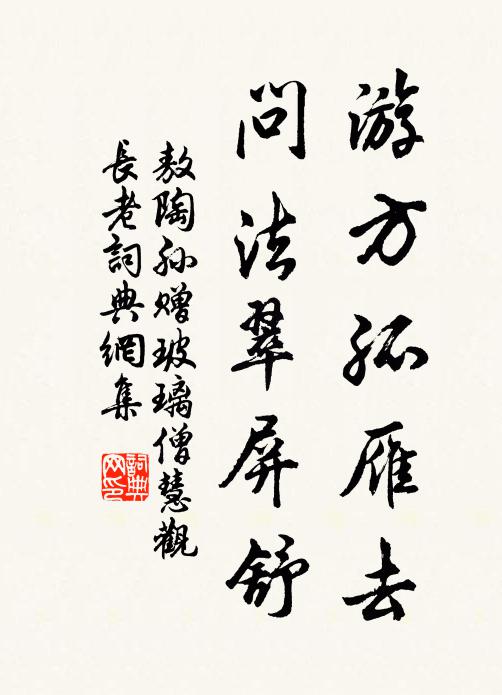 游方孤雁去
問法翠屏舒
敖陶孙赠玻璃僧慧觀
長老詞典網集
詞典
网印